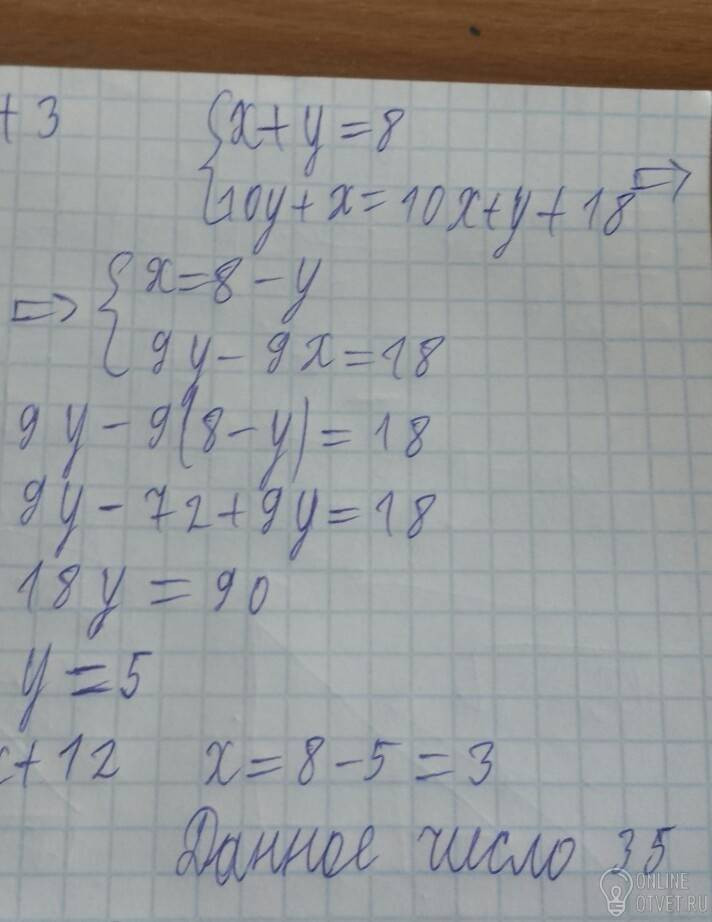 + 3 {x + y = 8
{10y + x = 10x + y + 18 ⇒
⇒ {x = 8 - y
{9y - 9x = 18
9y - 9(8 - y) = 18
9y - 72 + 9y = 18
18y = 90
y = 5
x + 12 x = 8 - 5 = 3
Данное число 35
ONLINE
OTVET.RU